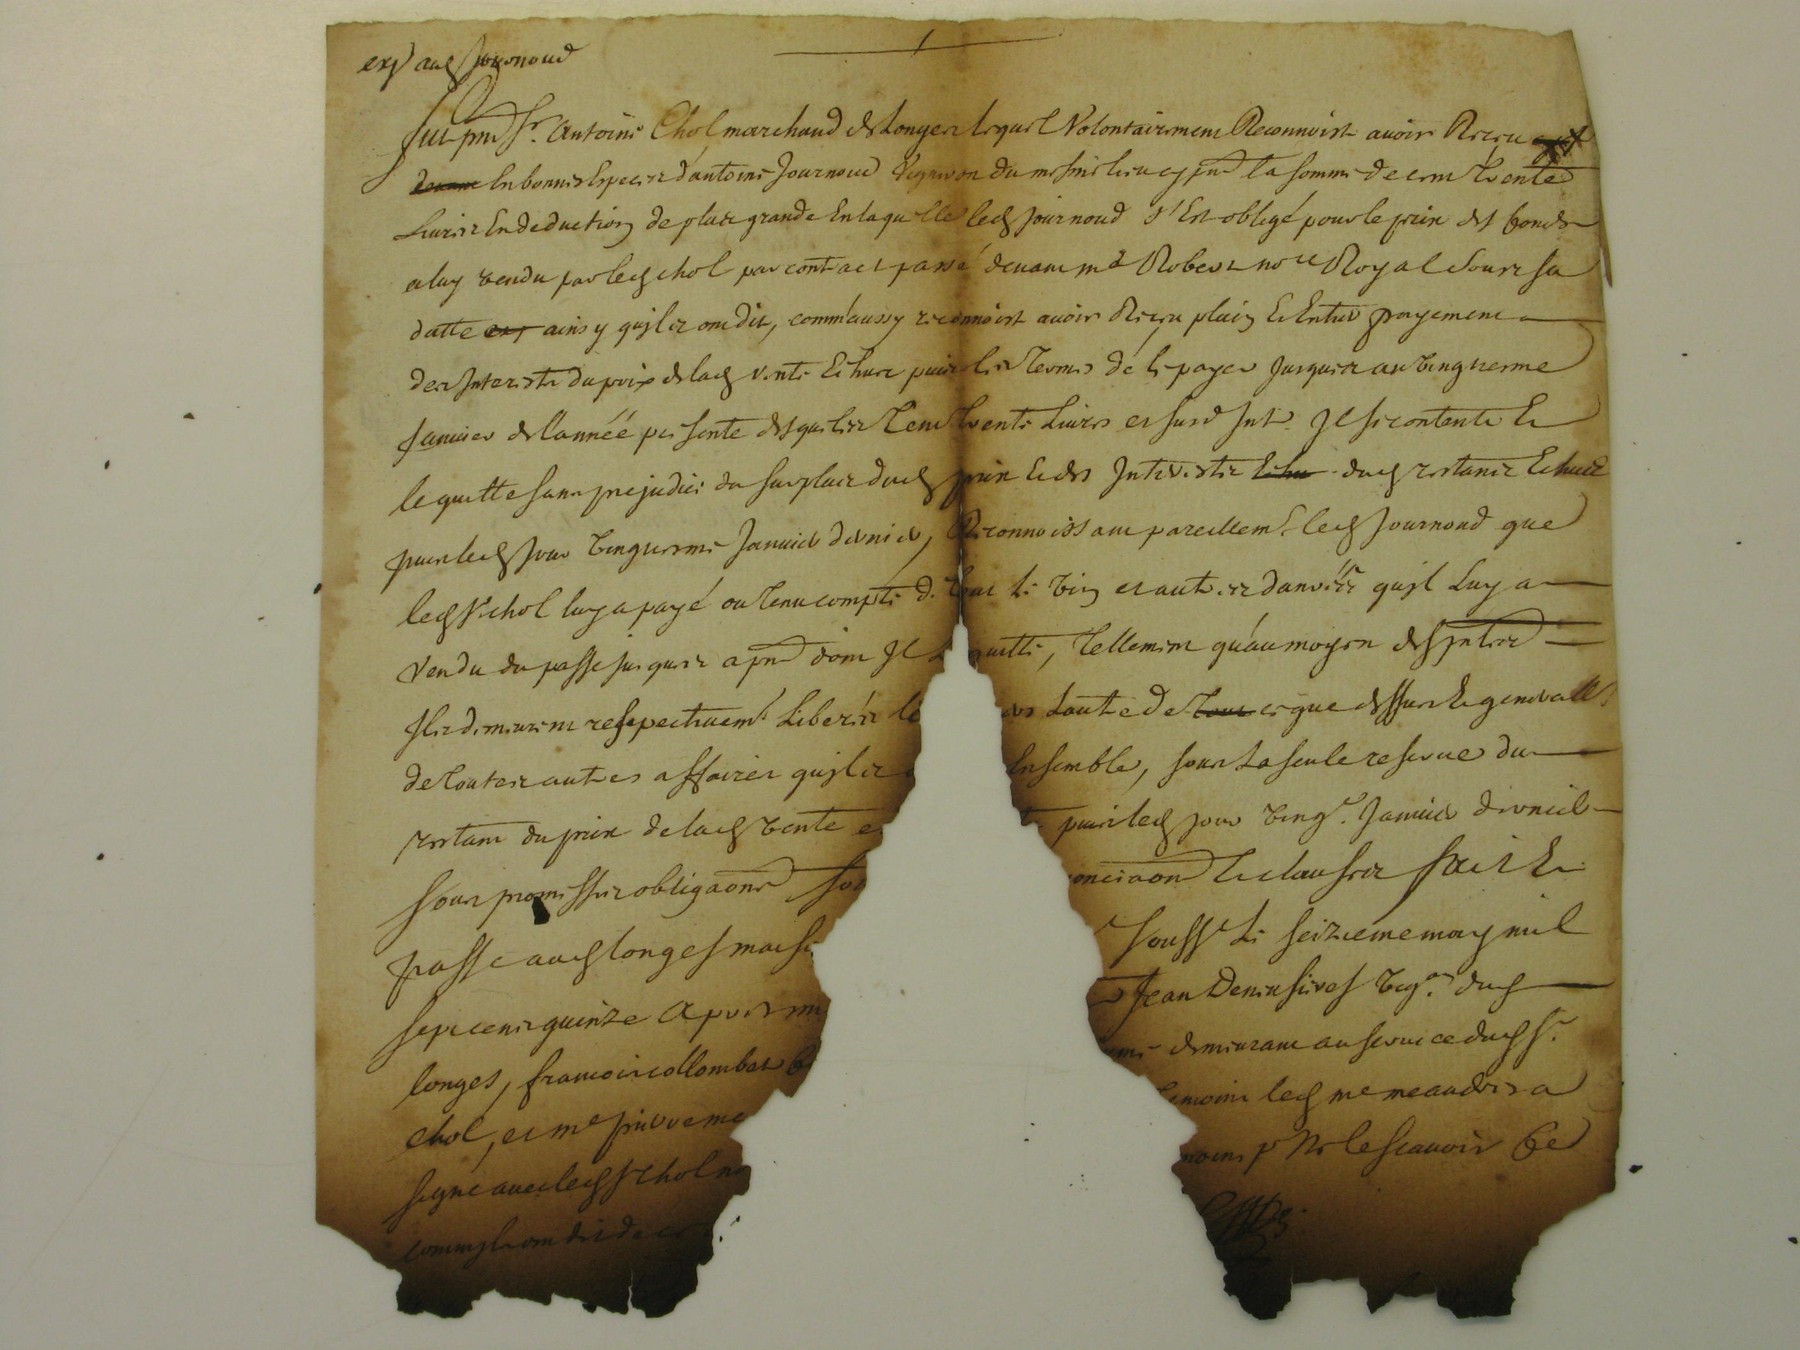 exp aud Journoud
fut pnt Sr. Antoine Chol marchand de Longes lequel Volontairement Reconnoist avoir Receu
devant En bonnes Especes d'antoine Journoud Vigneron du mesme lieu cy pnt la somme de cent Trente
Livres En deduction de plus grande En laquelle led Journoud s'Est obligé pour le prix des fonds
a luy vendu par led chol par contract passé devant me Robert nore Royal Sous sa
datte ainsy qu'jls ont dit, comm'aussy reconnoist avoir Receu plain Et Entier payement
des Interests du prix de lad vente Echus puis les termes de le payer Jusques au vingtiesme
Janvier de l'année presente desquelles Cent trente Livres et susd Int. Jl se contente Et
le quitte sans prejudice du surplus dud prix Et des Interestz Echu dud restant Echus
puis led jour vingtiesme Janvier dernier, Reconnoissant pareillemt led Journoud que
led Sr chol luy a payé ou tenu compte de tout le vin et autres danrées qu'jl Luy a
vendu du passé jusques a pnt dont Jl quitte, Tellement qu'au moyen des pntes
Jls demeurent respectivemt Liberés l' de tout ce que dessus Et generalle
de toutes autres affaires qu'jls Ensemble, sous La seule reserve du
restant du prix de lad vente puis led jour vingt. Janvier dernier
sous promesses obligaons onciaons Et clauses fait Et
passé aud longes mais soussé Le seizieme may mil
sept cents quinze Jean Denis vign. dud
longes, francois collombet demeurant au service dud Sr.
chol, et me pierre led
signé avec led Sr chol p Ne le scavoir
comm'jls ont dit de